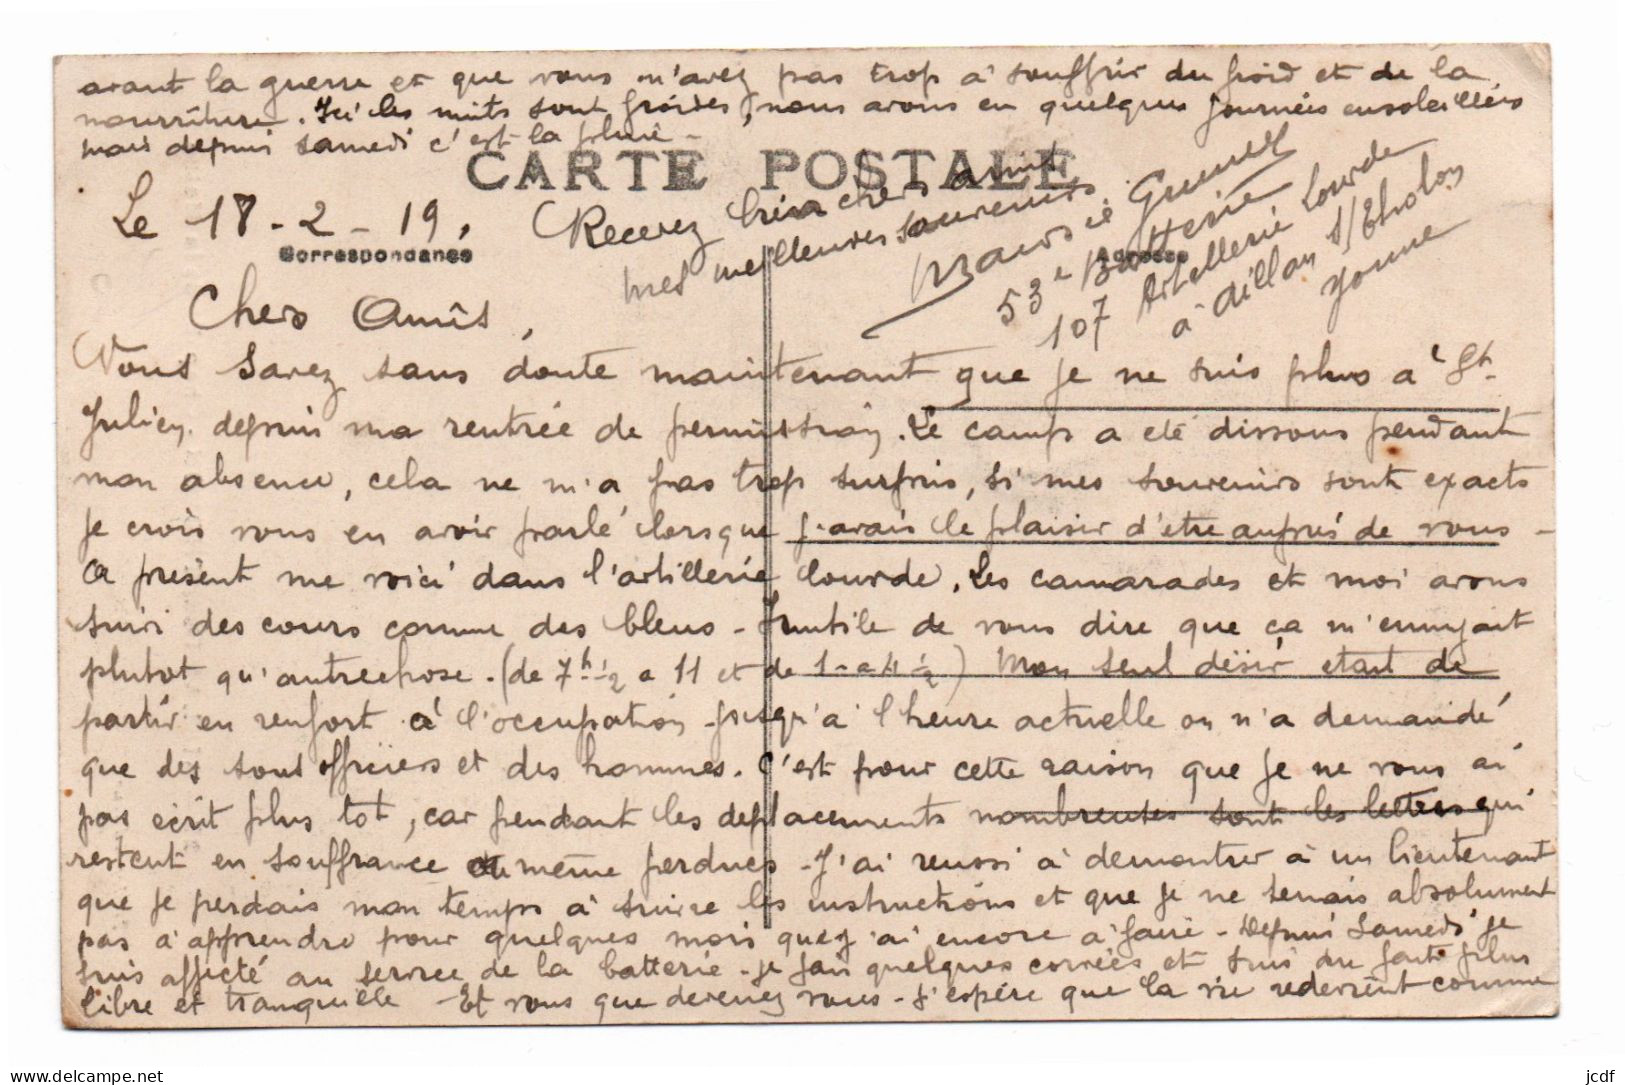 avant la guerre et que vous n'avez pas trop à souffrir du froid et de la
nourriture. Ici les nuits sont froides, nous avons eu quelques journées ensoleillées
mais depuis samedi c'est la pluie -
CARTE POSTALE
Le 18-2-19,
Correspondance
Adresse
Recevez bien chers amis
mes meilleures souvenirs
53e Batterie
107 Artellerie Lourde
à Aillan s/Tholon
Yonne
Chers Amis,
Vous savez sans doute maintenant que je ne suis plus à St.
Julien depuis ma rentrée de permission. Le camp a été dissous pendant
mon absence, cela ne m'a pas trop surpris, si mes souvenirs sont exacts
je crois vous en avoir parlé lorsque j'avais le plaisir d'etre auprés de vous -
A présent me voici dans l'artillerie lourde. Les camarades et moi avons
suivi des cours comme des bleus - Inutile de vous dire que ça m'ennuyait
plutot qu'autrechose - (de 7h 1/2 a 11 et de 1 - a 4 1/2) Mon seul désir etait de
partir en renfort à l'occupation - jusqu'à l'heure actuelle on n'a demandé
que des sous officiers et des hommes. C'est pour cette raison que je ne vous ai
pas ecrit plus tot, car pendant les deplacements nombreuses sont les lettres qui
restent en souffrance ou même perdues - J'ai reussi à demontrer à un lieutenant
que je perdais mon temps à suivre les instructions et que je ne tenais absolument
pas à apprendre pour quelques mois que j'ai encore à faire - Depuis Samedi je
suis affecté au service de la batterie - je fais quelques corvées et suis du fait plus
libre et tranquille - Et vous que devenez vous - J'espère que la vie redevient comme
delcampe.net
jcdf